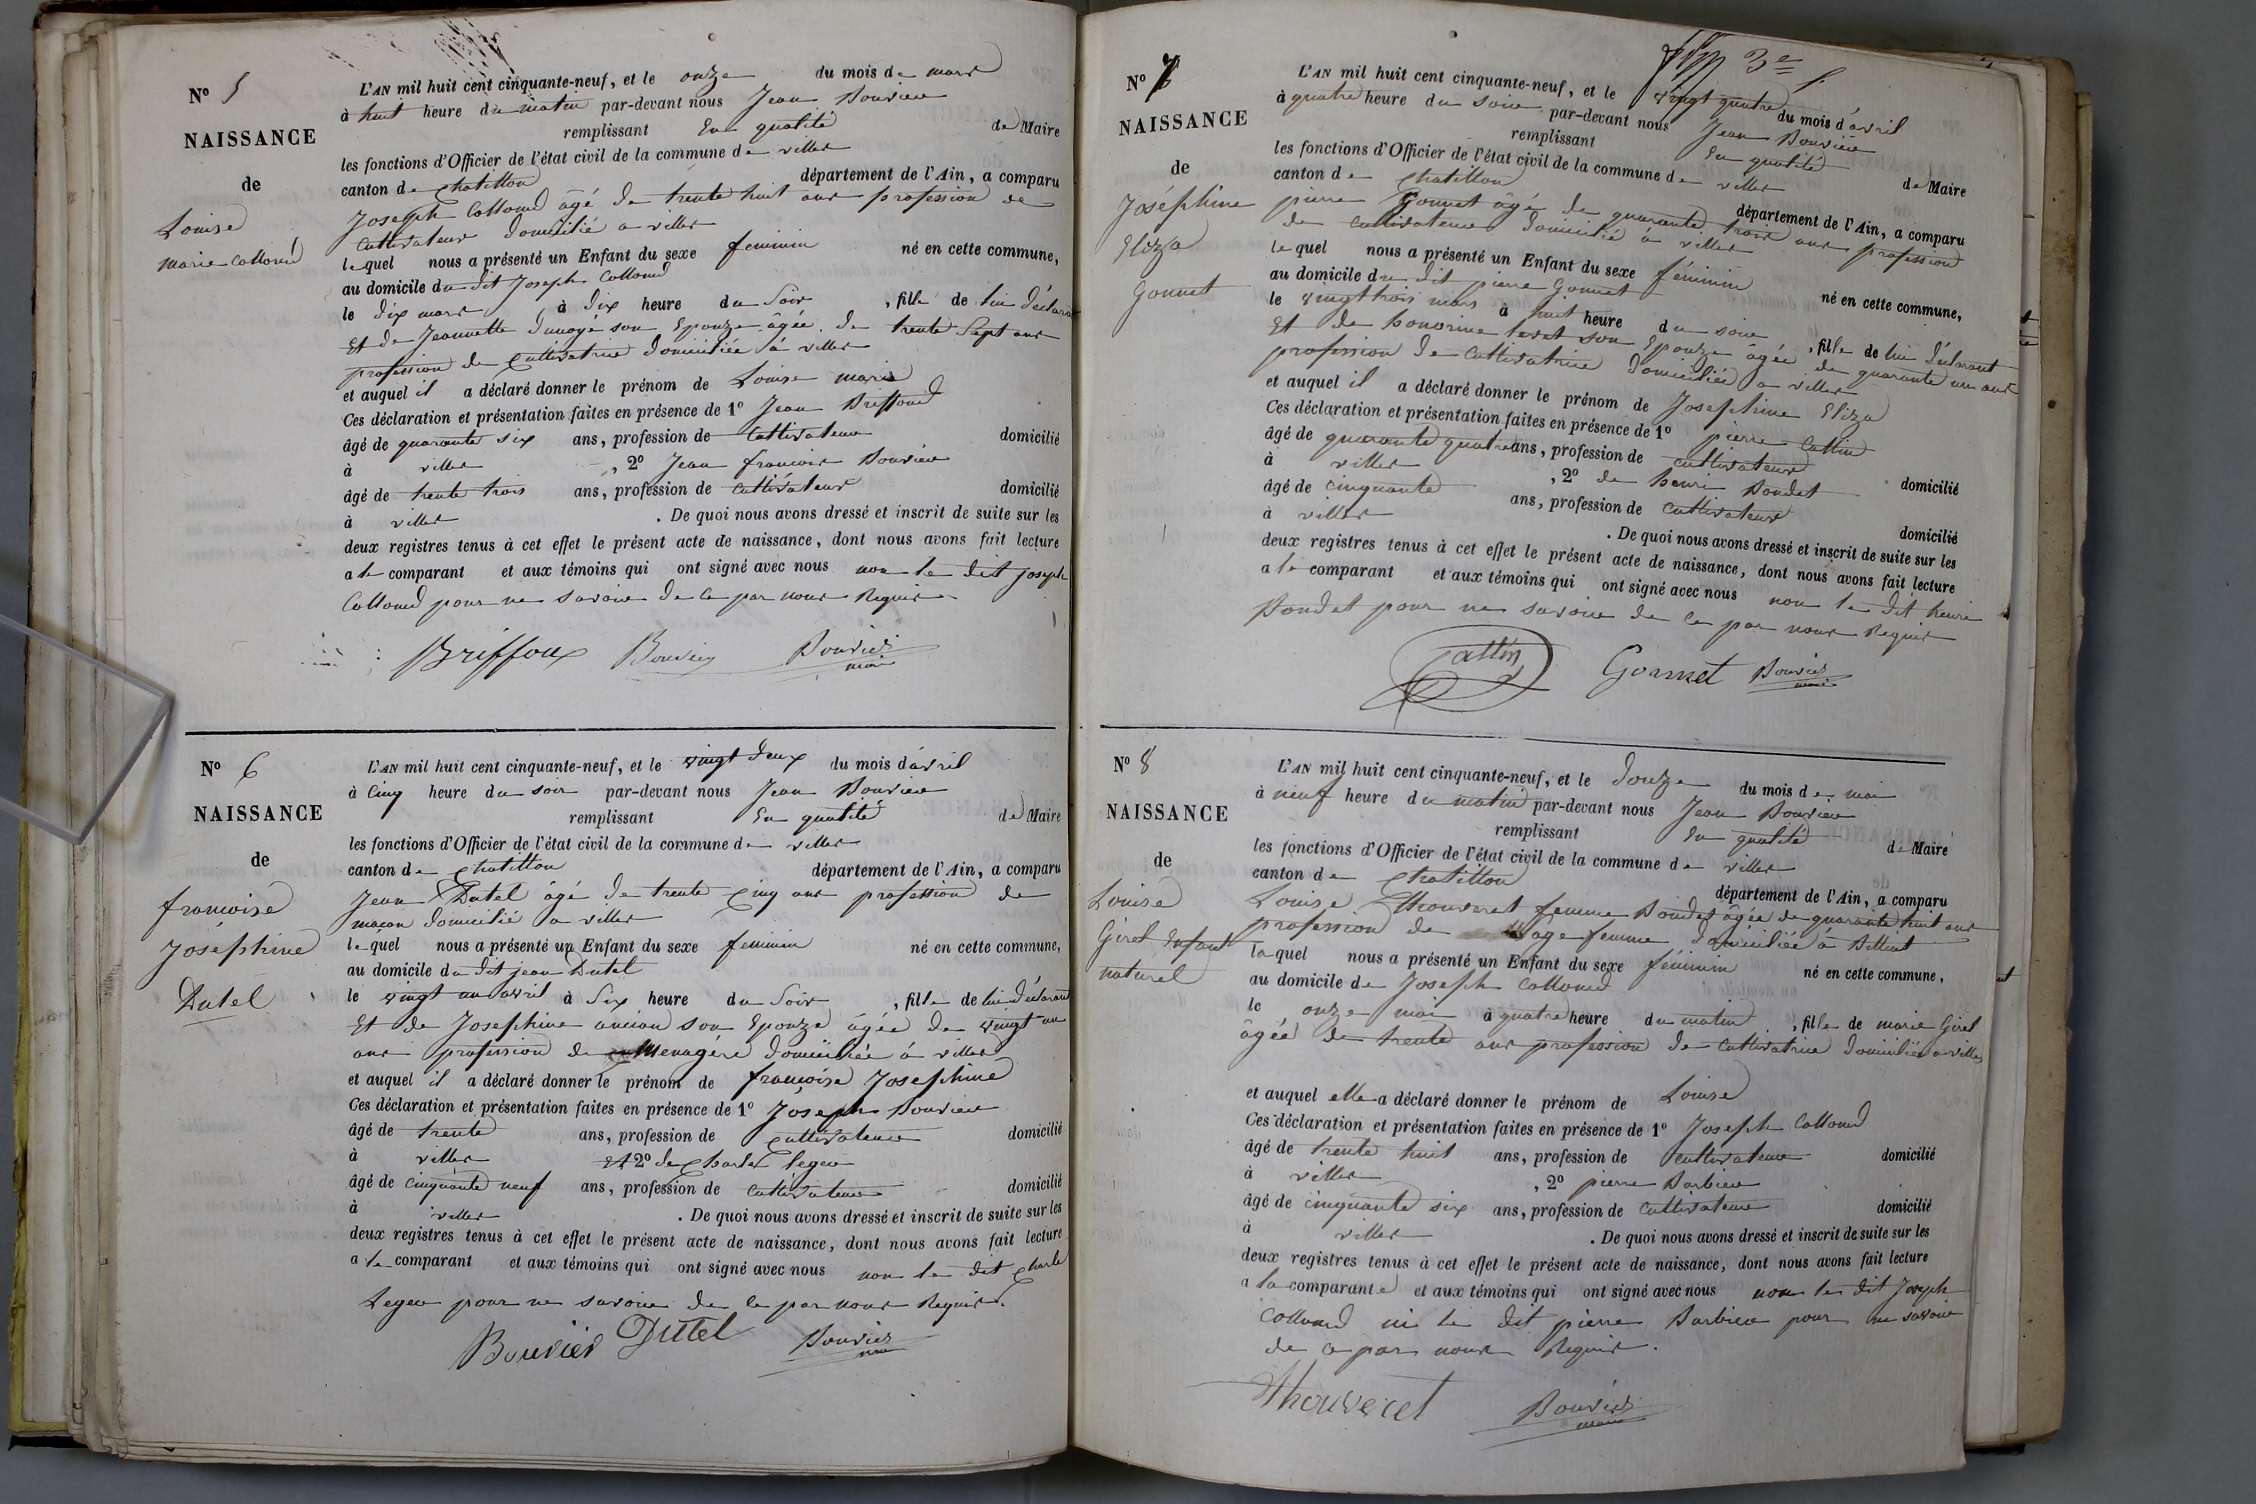 Nº 5
NAISSANCE
de
Louise
marie Collomd
L'AN mil huit cent cinquante-neuf, et le onze du mois de mars
à huit heure du matin par-devant nous Jean Bouvier
remplissant En qualité de Maire
les fonctions d'Officier de l'état civil de la commune de villes
canton de Chatillon département de l'Ain, a comparu
Joseph Collomd âgé de trente huit ans profession de
Cultivateur domicilié a villes
lequel nous a présenté un Enfant du sexe feminin né en cette commune,
au domicile du dit Joseph Collomd
le dix mars à dix heure du Soir, fille de lui déclarant
Et de Jeannette son Epouze âgée de trente Sept ans
profession de Cultivatrice domiciliée á villes
et auquel il a déclaré donner le prénom de Louise marie
Ces déclaration et présentation faites en présence de 1º Jean Briffoud
âgé de quarante six ans, profession de Cultivateur domicilié
à villes, 2º Jean francois Bouvier
âgé de trente trois ans, profession de Cultivateur domicilié
à villes. De quoi nous avons dressé et inscrit de suite sur les
deux registres tenus à cet effet le présent acte de naissance, dont nous avons fait lecture
a le comparant et aux témoins qui ont signé avec nous non le dit Joseph
Collomd pour ne savoir de ce par nous Requis
Briffoux Bouvier Bouvier
maire
Nº 6
NAISSANCE
de
francoise
Joséphine
Dutel
L'AN mil huit cent cinquante-neuf, et le vingt deux du mois d'avril
à Cinq heure du soir par-devant nous Jean Bouvier
remplissant En qualité de Maire
les fonctions d'Officier de l'état civil de la commune de villes
canton de Chatillon département de l'Ain, a comparu
Jean Dutel âgé de trente Cinq ans profession de
macon domicilié a villes
lequel nous a présenté un Enfant du sexe feminin né en cette commune,
au domicile du dit jean Dutel
le vingt un avril à Six heure du Soir, fille de lui déclarant
Et de Josephine ancian son Epouze âgée de vingt un
ans profession de Menagére domiciliée á villes
et auquel il a déclaré donner le prénom de francoise Josephine
Ces déclaration et présentation faites en présence de 1º Joseph Bouvier
âgé de trente ans, profession de Cultivateur domicilié
à villes et 2º de Charles Leger
âgé de cinquante neuf ans, profession de Cultivateur domicilié
à villes. De quoi nous avons dressé et inscrit de suite sur les
deux registres tenus à cet effet le présent acte de naissance, dont nous avons fait lecture
a le comparant et aux témoins qui ont signé avec nous non le dit Charle
Leger pour ne savoir de ce par nous Requis.
Bouvier Dutel Bouvier
maire
3e f
Nº 7
NAISSANCE
de
Joséphine
Eliza
Gonnet
L'AN mil huit cent cinquante-neuf, et le vingt quatre du mois d'avril
à quatre heure du soir par-devant nous Jean Bouvier
remplissant En qualité de Maire
les fonctions d'Officier de l'état civil de la commune de villes
canton de Chatillon département de l'Ain, a comparu
pierre Gonnet âgé de quarante trois ans profession
de cultivateur domicilié á villes
lequel nous a présenté un Enfant du sexe féminin né en cette commune,
au domicile du dit pierre Gonnet
le vingt trois mars à huit heure du soir, fille de lui déclarant
Et de honorine son Epouze âgée de quarante un ans
profession de Cultivatrice domiciliée a villes
et auquel il a déclaré donner le prénom de Josephine Eliza
Ces déclaration et présentation faites en présence de 1º pierre Cattin
âgé de quarante quatre ans, profession de cultivateur domicilié
à villes, 2º de henri Bondet
âgé de cinquante ans, profession de Cultivateur domicilié
à villes. De quoi nous avons dressé et inscrit de suite sur les
deux registres tenus à cet effet le présent acte de naissance, dont nous avons fait lecture
a le comparant et aux témoins qui ont signé avec nous non le dit henri
Bondet pour ne savoir de ce par nous Requis
Cattin Gonnet Bouvier
maire
Nº 8
NAISSANCE
de
Louise
Girel Enfant
naturel
L'AN mil huit cent cinquante-neuf, et le douze du mois de mai
à neuf heure du matin par-devant nous Jean Bouvier
remplissant En qualité de Maire
les fonctions d'Officier de l'état civil de la commune de villes
canton de Chatillon département de l'Ain, a comparu
Louise Thouveret femme Bondet âgée de quarante huit ans
profession de Sage femme domiciliée á Billiat
laquel nous a présenté un Enfant du sexe féminin né en cette commune,
au domicile de Joseph Collomd
le onze mai à quatre heure du matin, fille de marie Girel
âgée de trente ans profession de Cultivatrice domiciliée a villes
et auquel elle a déclaré donner le prénom de Louise
Ces déclaration et présentation faites en présence de 1º Joseph Collomd
âgé de trente huit ans, profession de cultivateur domicilié
à villes, 2º pierre Barbier
âgé de cinquante six ans, profession de Cultivateur domicilié
à villes. De quoi nous avons dressé et inscrit de suite sur les
deux registres tenus à cet effet le présent acte de naissance, dont nous avons fait lecture
a la comparante et aux témoins qui ont signé avec nous non le dit Joseph
Collomd ni le dit pierre Barbier pour ne savoir
de ce par nous Requis.
Thouveret Bouvier
maire